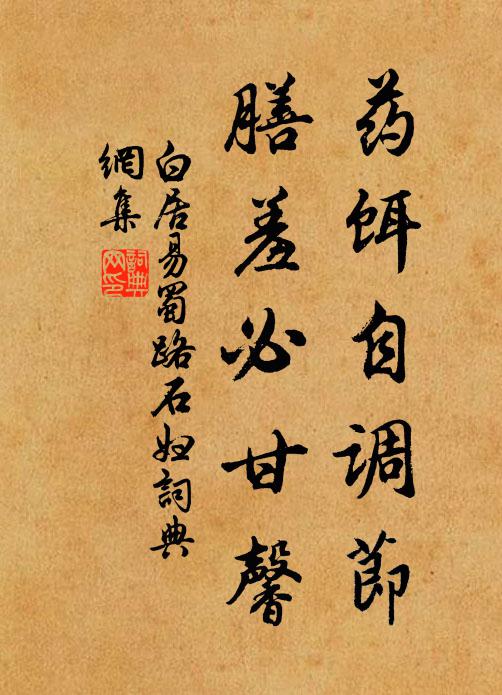 药饵自调节
膳羞必甘馨
白居易蜀路石妇詞典
網集
詞典
网印